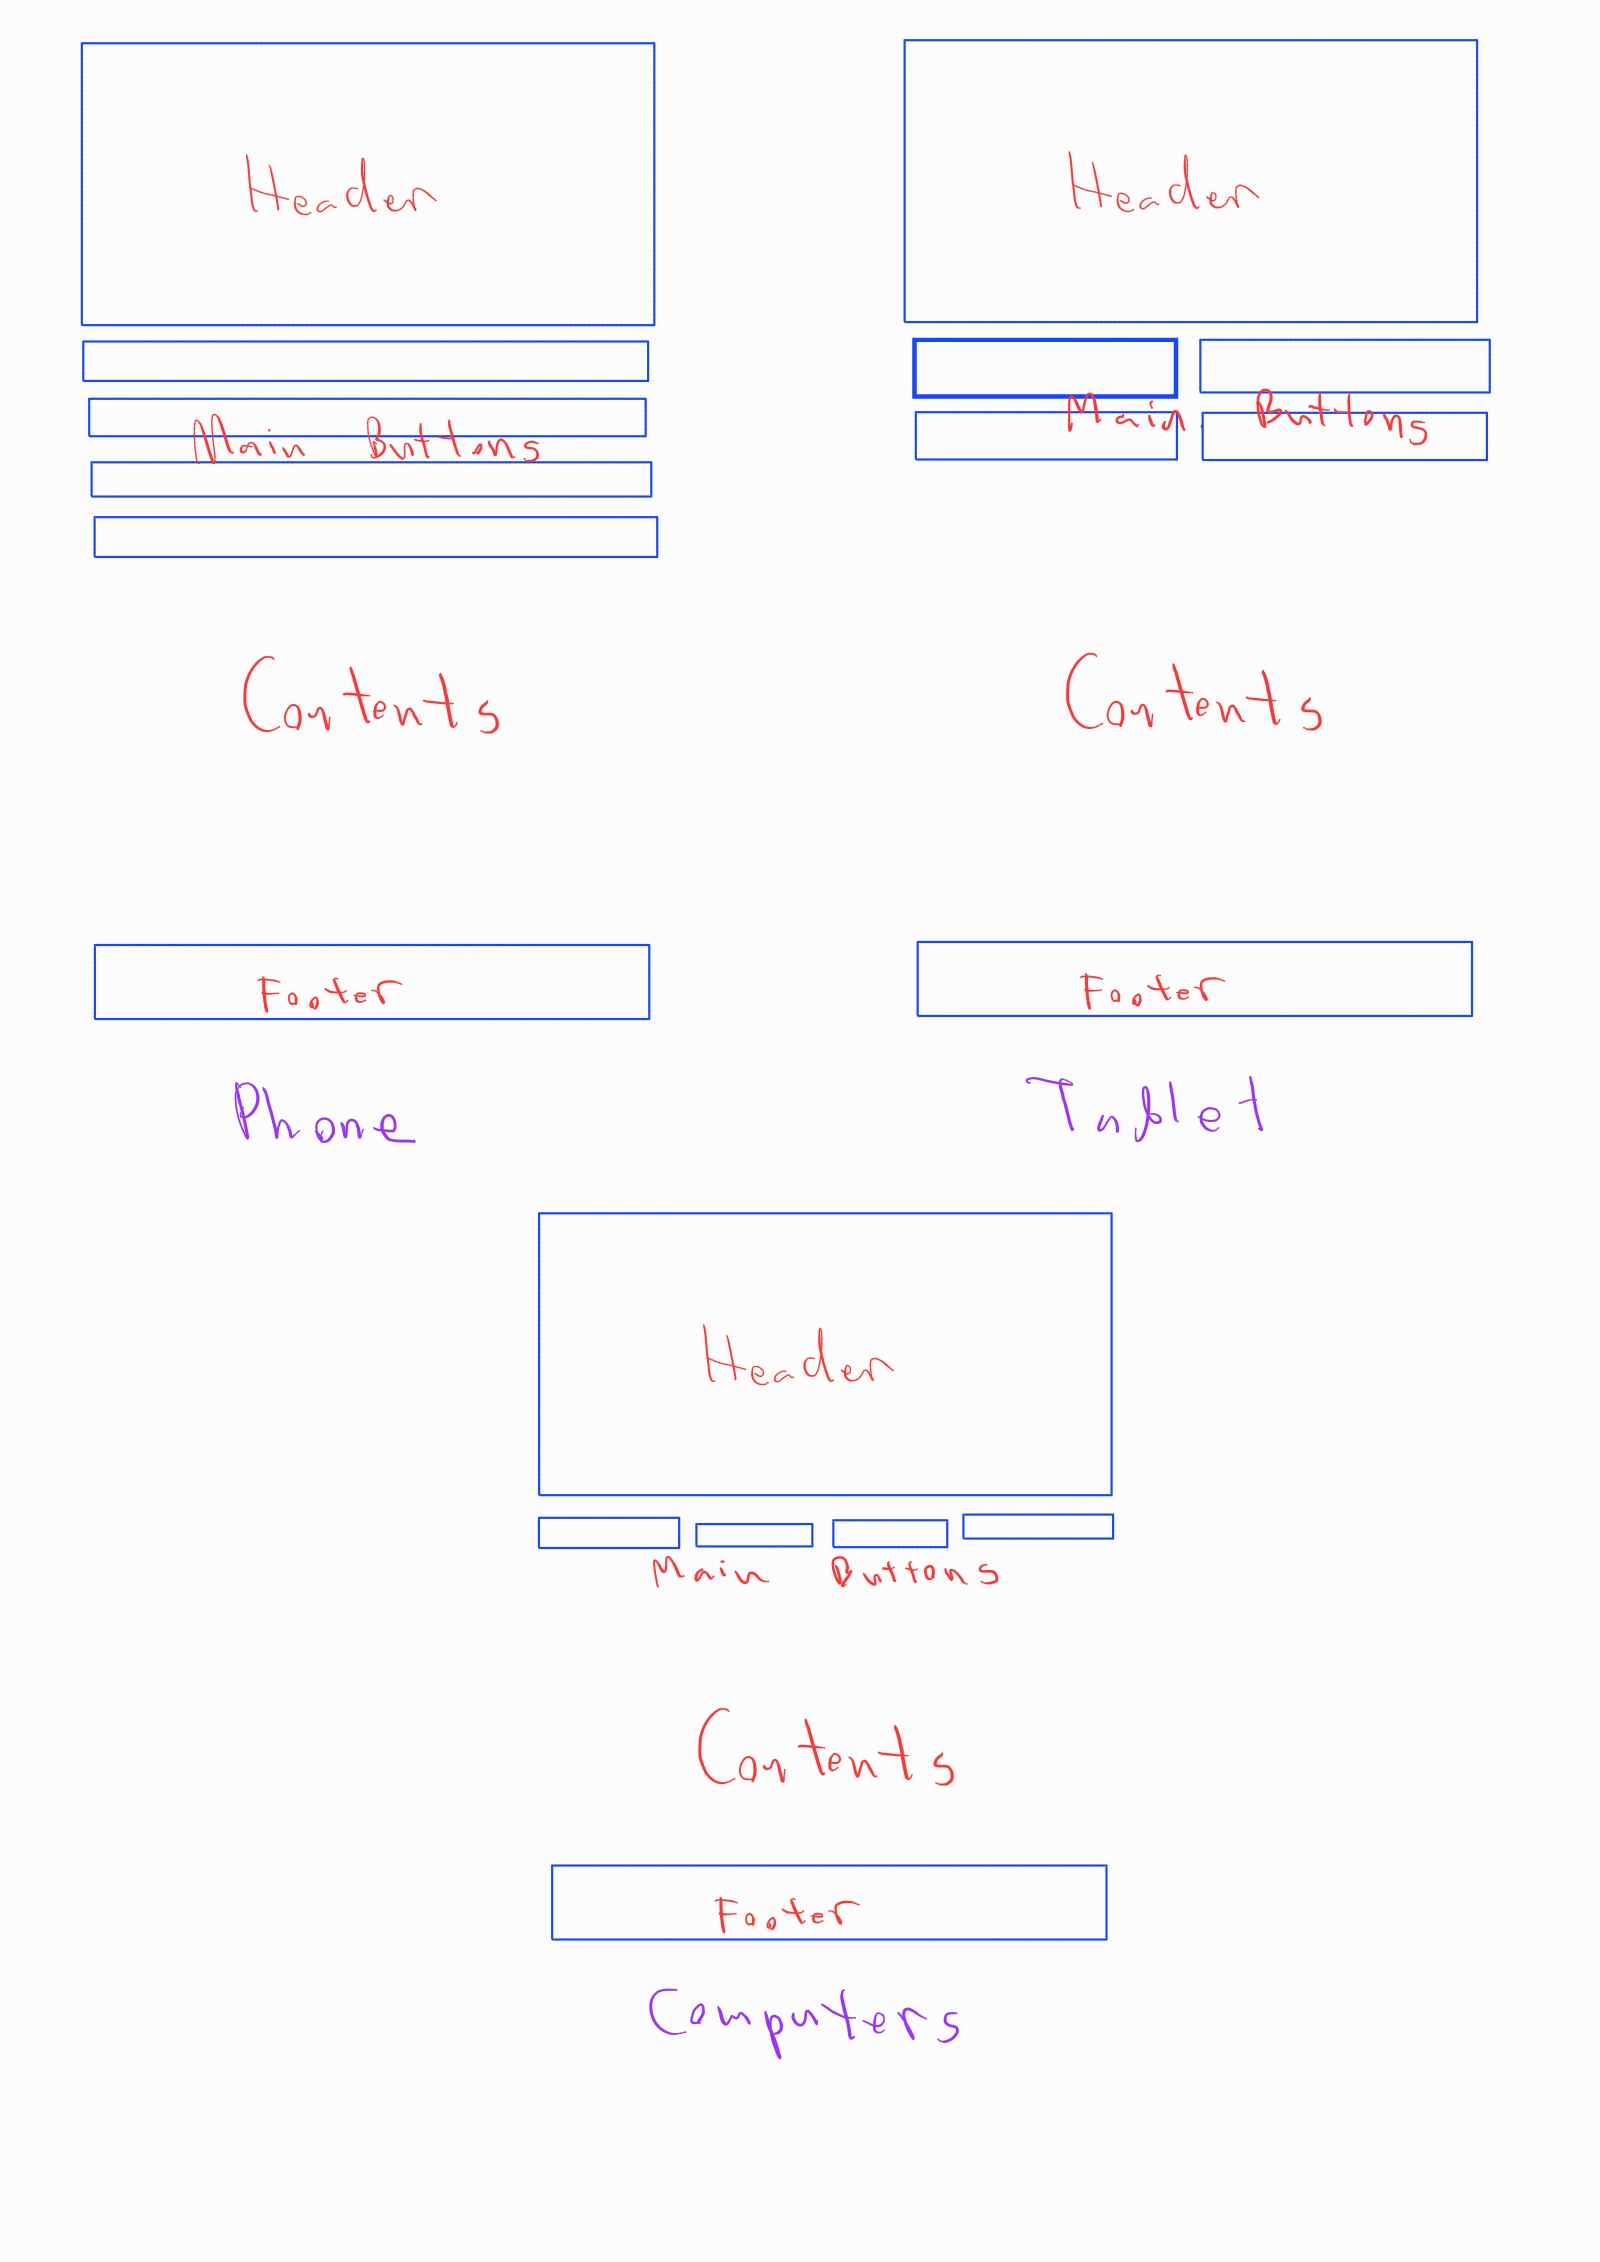 Header
Main Buttons
Contents
Footer
Phone
Header
Main Buttons
Contents
Footer
Tablet
Header
Main Buttons
Contents
Footer
Computers